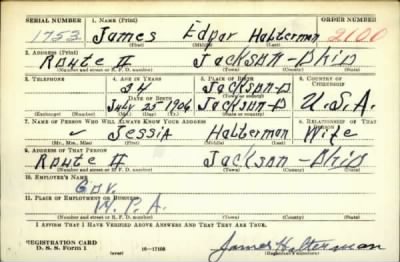 SERIAL NUMBER 1. NAME (Print) ORDER NUMBER
1753 James Edgar Halterman 2100
(First) (Middle) (Last)
2. ADDRESS (Print)
Route # Jackson - Ohio
(Number and street or R. F. D. number) (Town) (County) (State)
3. TELEPHONE 4. AGE IN YEARS 5. PLACE OF BIRTH 6. COUNTRY OF CITIZENSHIP
34 Jackson-O
DATE OF BIRTH
July 25 1906 Jackson-O U.S.A.
(Exchange) (Number) (Mo.) (Day) (Yr.) (State or country)
7. NAME OF PERSON WHO WILL ALWAYS KNOW YOUR ADDRESS 8. RELATIONSHIP OF THAT PERSON
Jessia Halterman Wife
(Mr., Mrs., Miss) (First) (Middle) (Last)
9. ADDRESS OF THAT PERSON
Route # Jackson - Ohio
(Number and street or R. F. D. number) (Town) (County) (State)
10. EMPLOYER'S NAME
Gov.
11. PLACE OF EMPLOYMENT OR BUSINESS
W.P.A.
(Number and street or R. F. D. number) (Town) (County) (State)
I AFFIRM THAT I HAVE VERIFIED ABOVE ANSWERS AND THAT THEY ARE TRUE.
REGISTRATION CARD
D. S. S. Form 1 16-17105 James Halterman
(Registrant's signature)